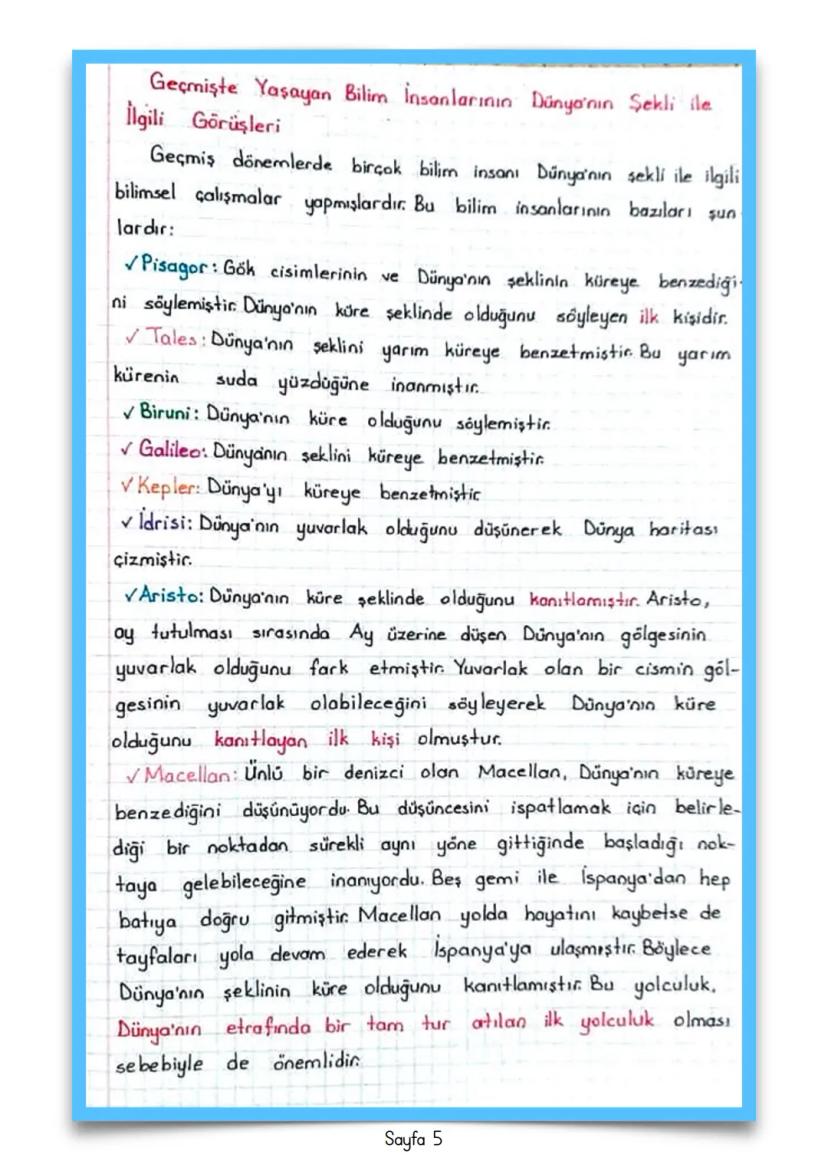 Geçmişte Yaşayan Bilim İnsanlarının Dünya'nın Şekli ile
İlgili Görüşleri
Geçmiş dönemlerde birçok bilim insanı Dünya'nın şekli ile ilgili
bilimsel çalışmalar yapmışlardır. Bu bilim insanlarının bazıları şun
lardır:
✓Pisagor: Gök cisimlerinin ve Dünya'nın şeklinin küreye benzediği-
ni söylemiştir. Dünya'nın küre şeklinde olduğunu söyleyen ilk kişidir.
✓ Tales: Dünya'nın şeklini yarım küreye benzetmiştir. Bu yarım
kürenin suda yüzdüğüne inanmıştır.
✓ Biruni: Dünya'nın küre olduğunu söylemiştir.
✓ Galileo: Dünyanın şeklini küreye benzetmiştir.
✓ Kepler: Dünya'yı küreye benzetmiştir.
✓ İdrisi: Dünya'nın yuvarlak olduğunu düşünerek Dünya haritası
çizmiştir.
✓Aristo: Dünya'nın küre şeklinde olduğunu kanıtlamıştır. Aristo,
ay tutulması sırasında Ay üzerine düşen Dünya'nın gölgesinin
yuvarlak olduğunu fark etmiştir. Yuvarlak olan bir cismin göl-
gesinin yuvarlak olabileceğini söyleyerek Dünya'nın küre
olduğunu kanıtlayan ilk kişi olmuştur.
✓ Macellan: Ünlü bir denizci olan Macellan, Dünya'nın küreye
benzediğini düşünüyordu. Bu düşüncesini ispatlamak için belirle-
diği bir noktadan sürekli aynı yöne gittiğinde başladığı nok-
taya gelebileceğine inanıyordu. Beş gemi ile İspanya'dan hep
batıya doğru gitmiştir. Macellan yolda hayatını kaybetse de
tayfaları yola devam ederek İspanya'ya ulaşmıştır. Böylece
Dünya'nın şeklinin küre olduğunu kanıtlamıştır. Bu yolculuk,
Dünya'nın etrafında bir tam tur atılan ilk yolculuk olması
sebebiyle de önemlidir.
Sayfa 5